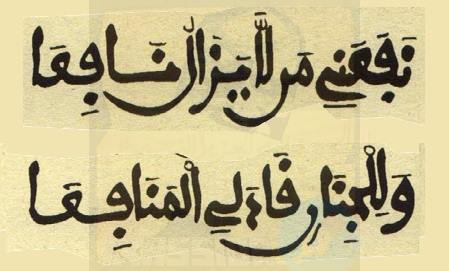 نَفَعَنِي مَن لَّا يَزَالُ نَافِعَا
وَلِلْجِنَانِ قَادَ لِي الْمَنَافِعَا